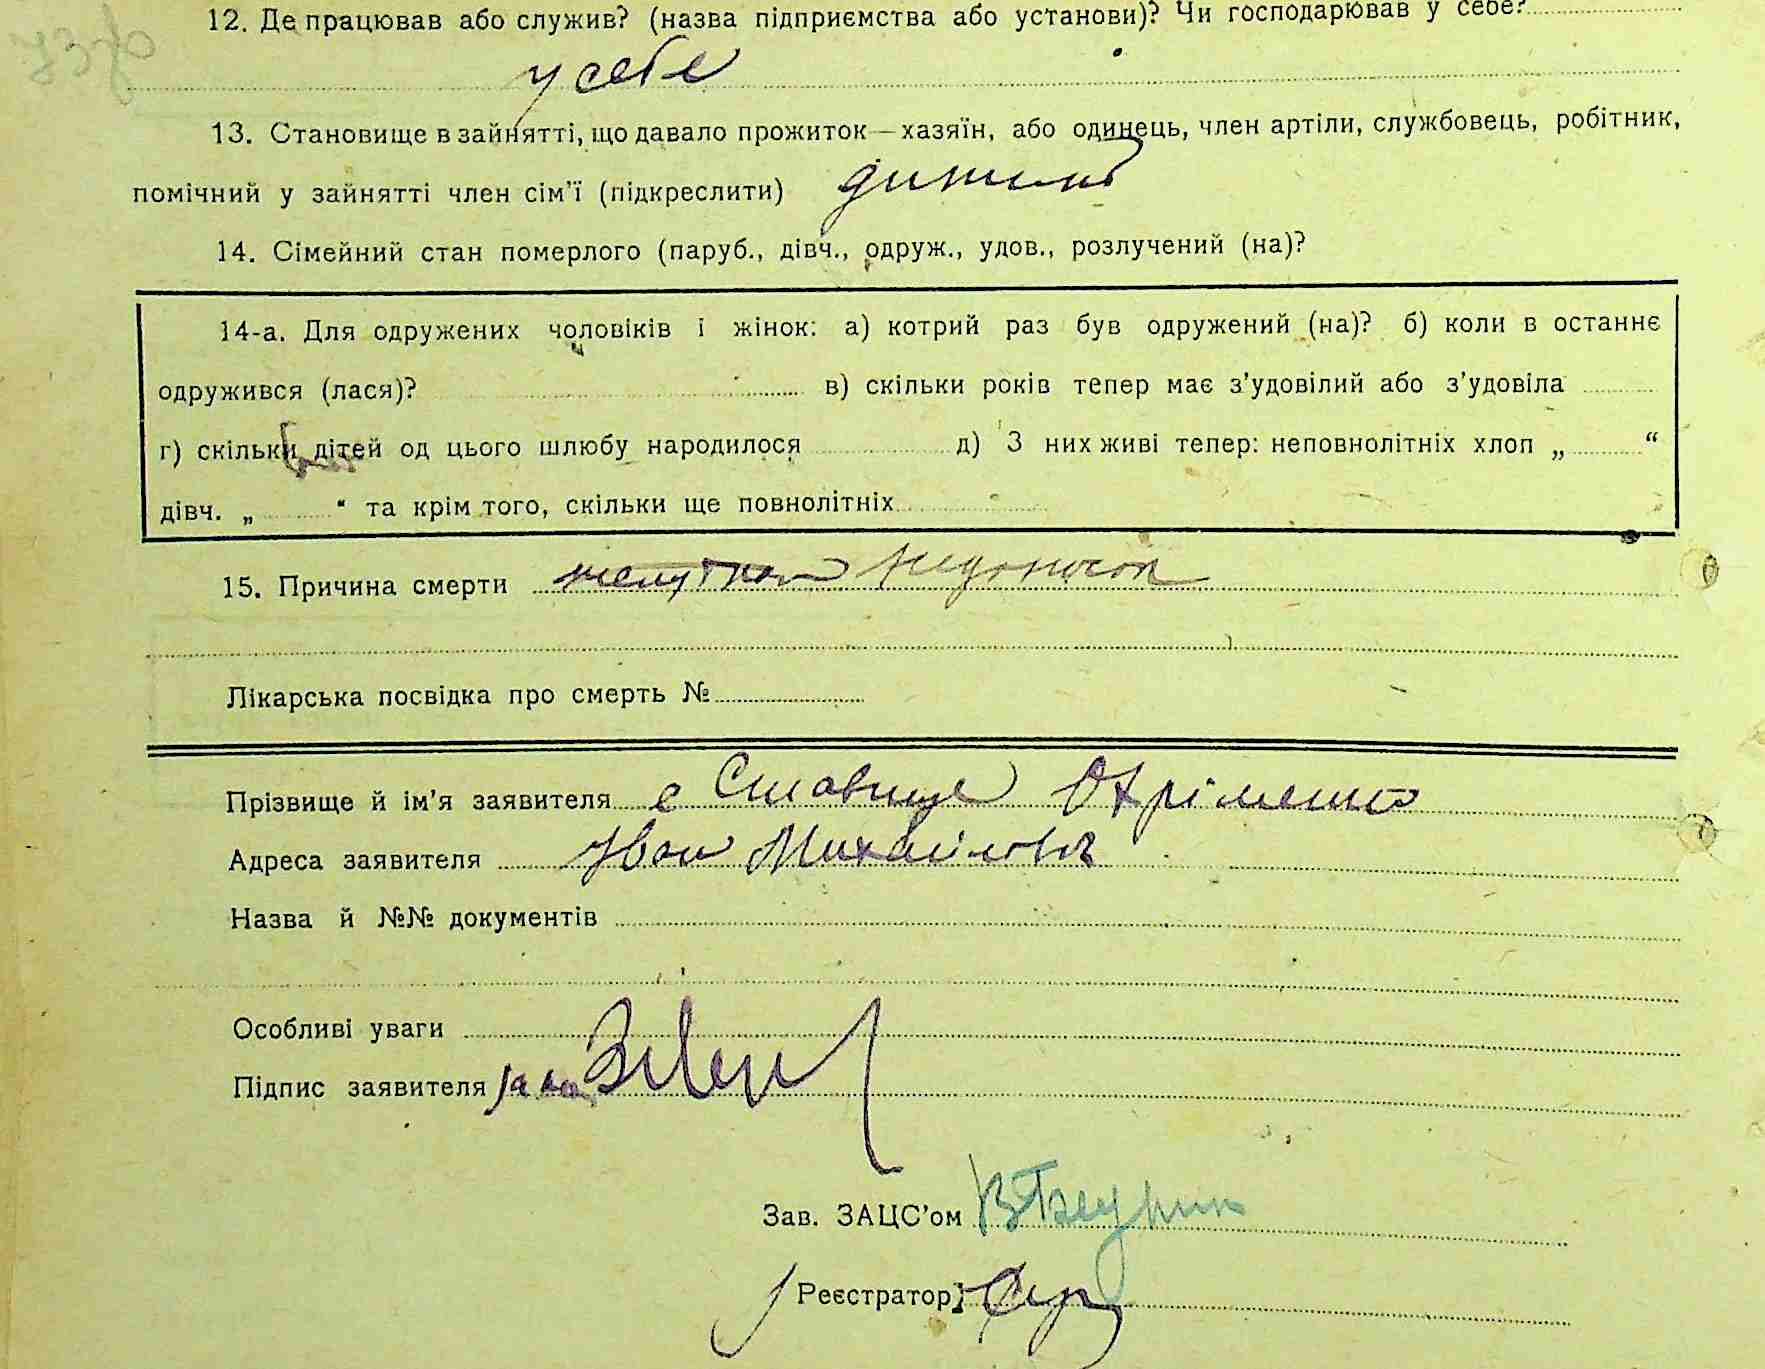 12. Де працював або служив? (назва підприємства або установи)? Чи господарював у себе?
у себе
13. Становище в зайнятті, що давало прожиток — хазяїн, або одинець, член артіли, службовець, робітник,
помічний у зайнятті член сім'ї (підкреслити) дитина
14. Сімейний стан померлого (паруб., дівч., одруж., удов., розлучений (на)?
14-а. Для одружених чоловіків і жінок: а) котрий раз був одружений (на)? б) коли в останнє
одружився (лася)? в) скільки років тепер має з'удовілий або з'удовіла
г) скільки дітей од цього шлюбу народилося д) З них живі тепер: неповнолітніх хлоп „ “
дівч. „ “ та крім того, скільки ще повнолітніх
15. Причина смерти недоносок
Лікарська посвідка про смерть №
Прізвище й ім'я заявителя с Ставище Охріменко
Адреса заявителя Іван Михайлович
Назва й №№ документів
Особливі уваги
Підпис заявителя
Зав. ЗАЦС'ом
Реєстратор